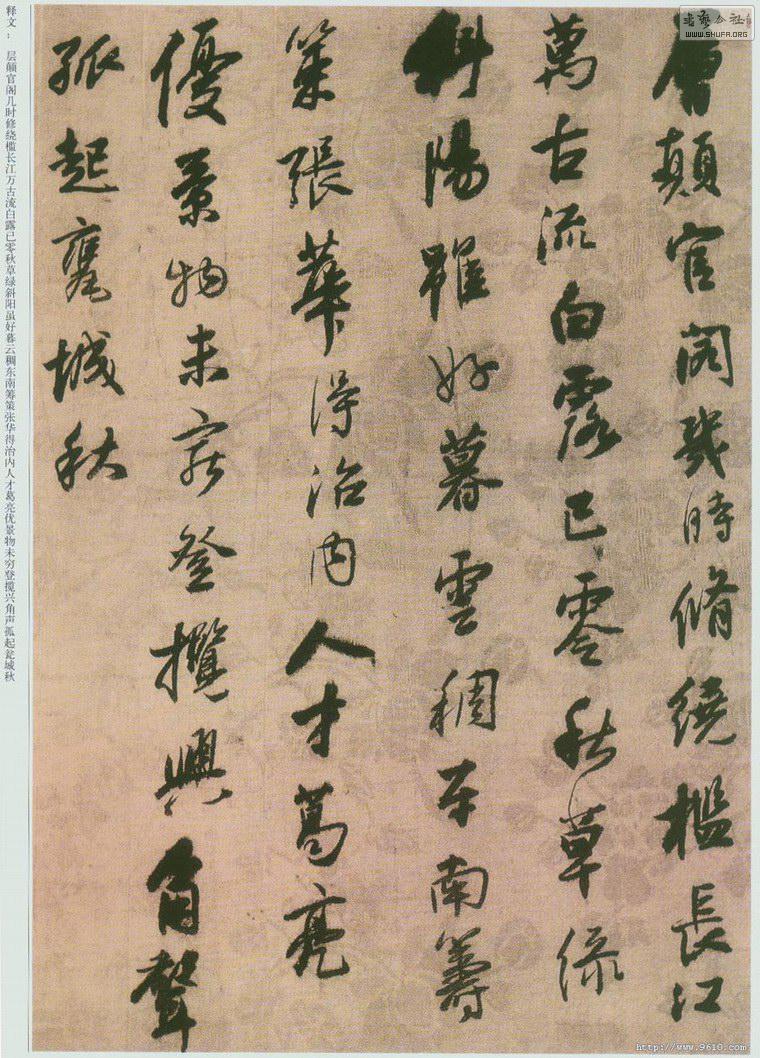 書藝公社
www.SHUFA.ORG
層顛官閣幾時脩繞檻長江
萬古流白露已零秋草綠
斜陽雖好暮雲稠東南籌
策張華得治內人才葛亮
優景物未窮登攬興角聲
孤起甕城秋
释文:层颠官阁几时修绕槛长江万古流白露已零秋草绿斜阳虽好暮云稠东南筹策张华得治内人才葛亮优景物未穷登揽兴角声孤起瓮城秋
http://www.9610.com